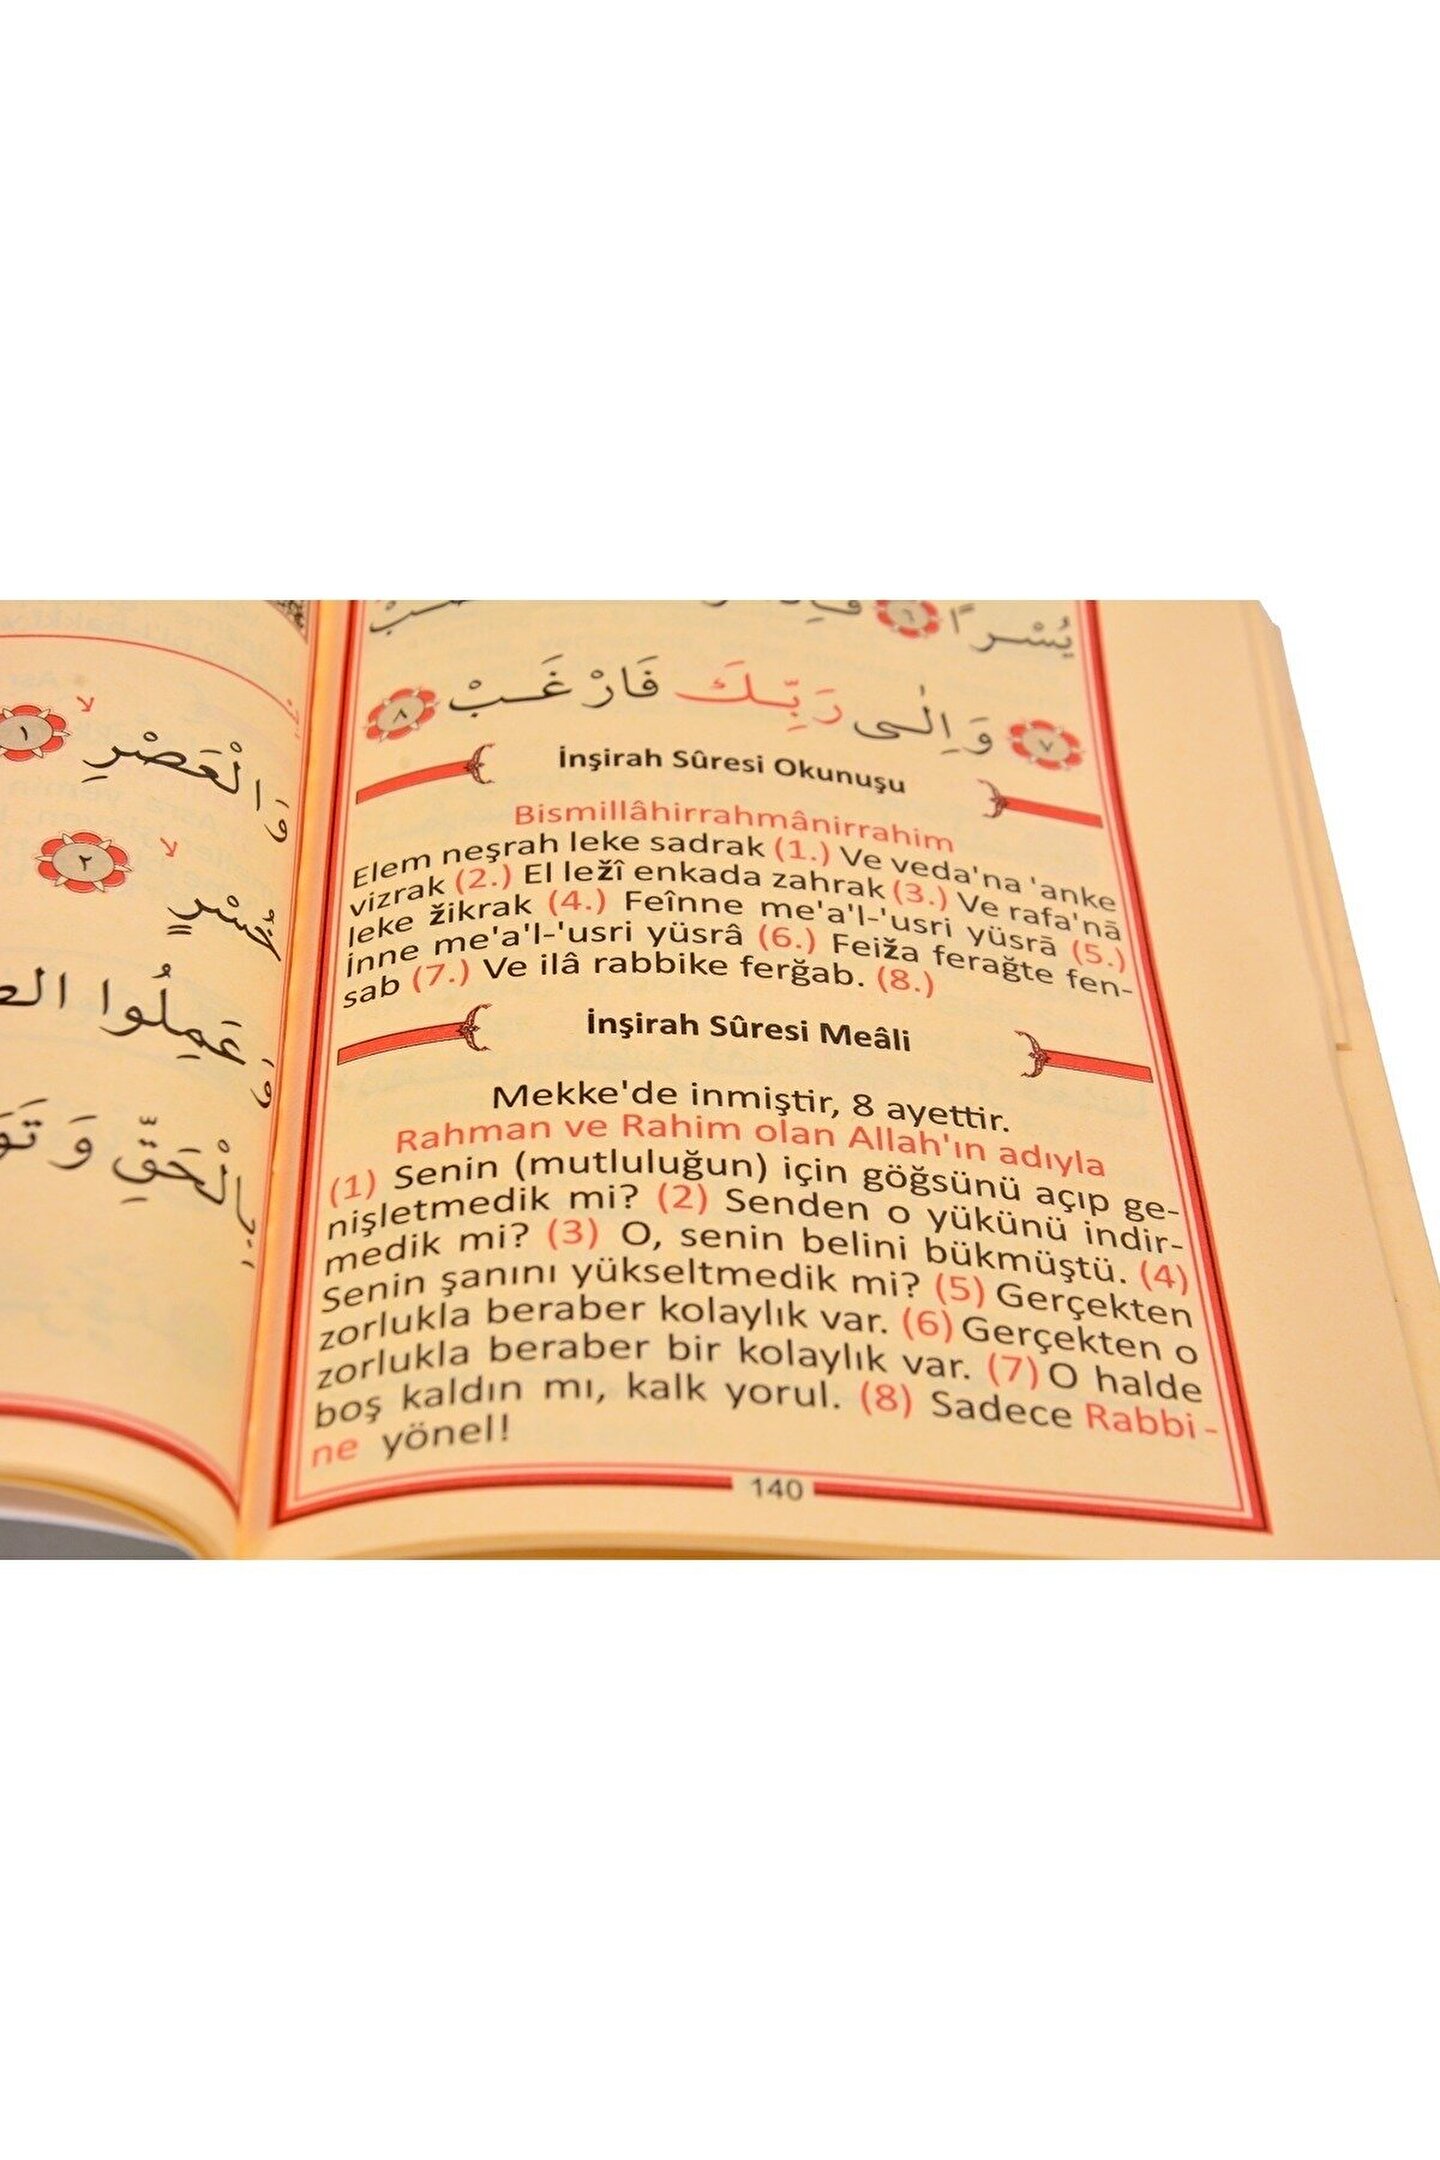 وَالْعَصْرِ ١
خُسْرٍ ٢
وَعَمِلُوا
بِالْحَقِّ
يُسْرًا ٦
٧ وَإِلٰى رَبِّكَ فَارْغَبْ ٨
İnşirah Sûresi Okunuşu
Bismillâhirrahmânirrahim
Elem neşrah leke sadrak (1.) Ve veda'na 'anke
vizrak (2.) El ležî enkada zahrak (3.) Ve rafa'nā
leke žikrak (4.) Feînne me'a'l-'usri yüsrā (5.)
İnne me'a'l-'usri yüsrâ (6.) Feiža ferağte fen-
sab (7.) Ve ilâ rabbike ferğab. (8.)
İnşirah Sûresi Meâli
Mekke'de inmiştir, 8 ayettir.
Rahman ve Rahim olan Allah'ın adıyla
(1) Senin (mutluluğun) için göğsünü açıp ge-
nişletmedik mi? (2) Senden o yükünü indir-
medik mi? (3) O, senin belini bükmüştü. (4)
Senin şanını yükseltmedik mi? (5) Gerçekten
zorlukla beraber kolaylık var. (6) Gerçekten o
zorlukla beraber bir kolaylık var. (7) O halde
boş kaldın mı, kalk yorul. (8) Sadece Rabbi-
ne yönel!
140